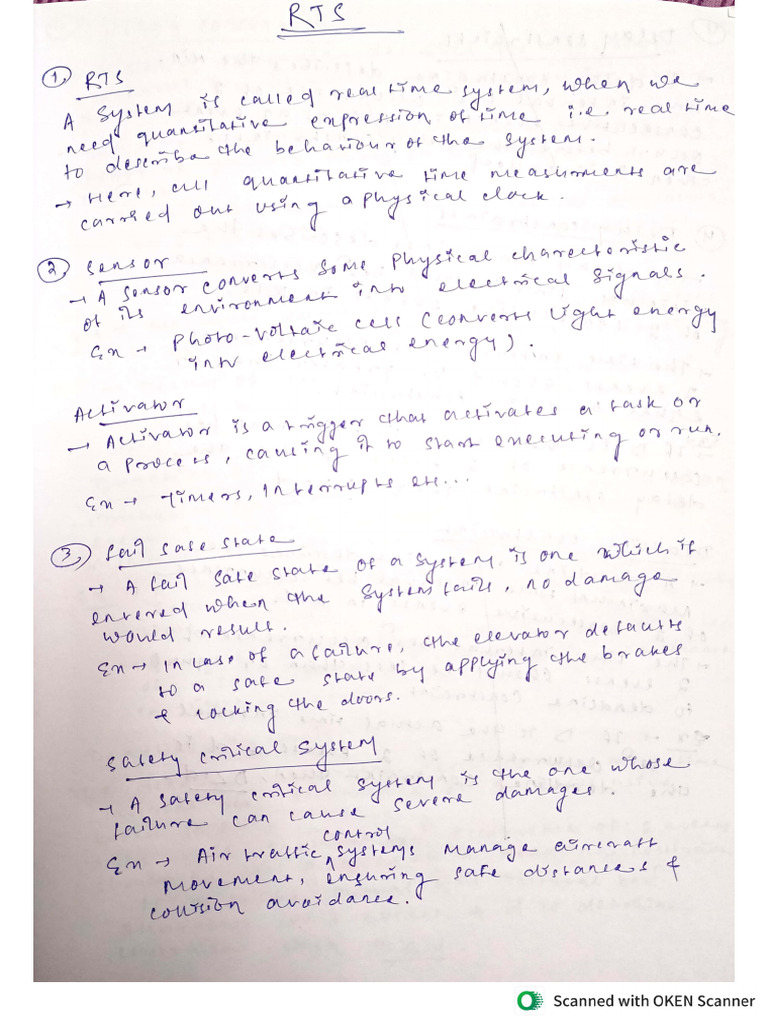 RTS
1. RTS
A system is called real time system, when we
need quantitative expression of time i.e. real time
to describe the behaviour of the system.
→ Here, all quantitative time measurments are
carried out using a physical clock.
2. Sensor
→ A sensor converts some physical charecteristic
of its environment into electrical signals.
Ex → Photo-voltaic cell (converts light energy
into electrical energy).
Activator
→ Activator is a trigger that activates a task or
a process, causing it to start executing or run.
Ex → Timers, Interrupts etc...
3. fail safe state
→ A fail safe state of a system is one which if
entered when the system fails, no damage
would result.
Ex → In case of a failure, the elevator defaults
to a safe state by applying the brakes
& locking the doors.
Safety critical system
→ A safety critical system is the one whose
failure can cause severe damages.
Ex → Air traffic control systems manage aircraft
movement, ensuring safe distances &
collision avoidance.
Scanned with OKEN Scanner